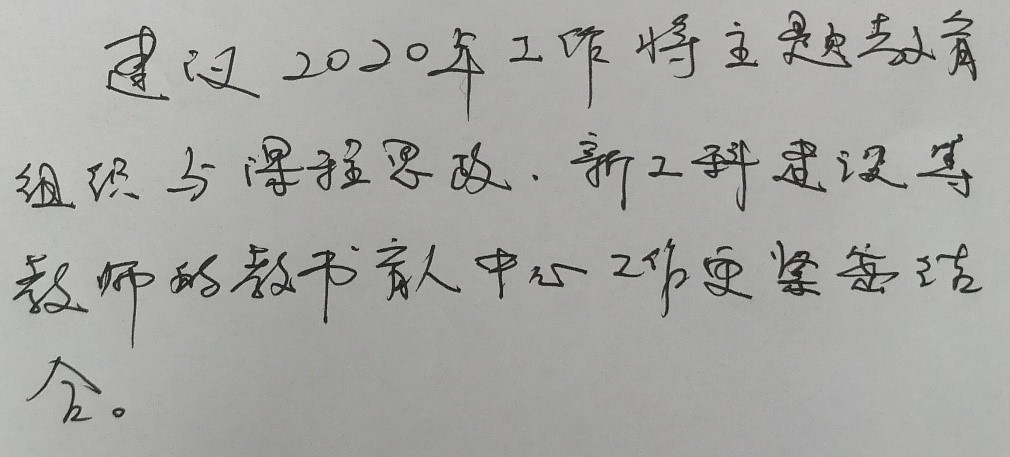 建议2020年工作将主题教育
组织与课程思政、新工科建设等
教师的教书育人中心工作更紧密结
合。